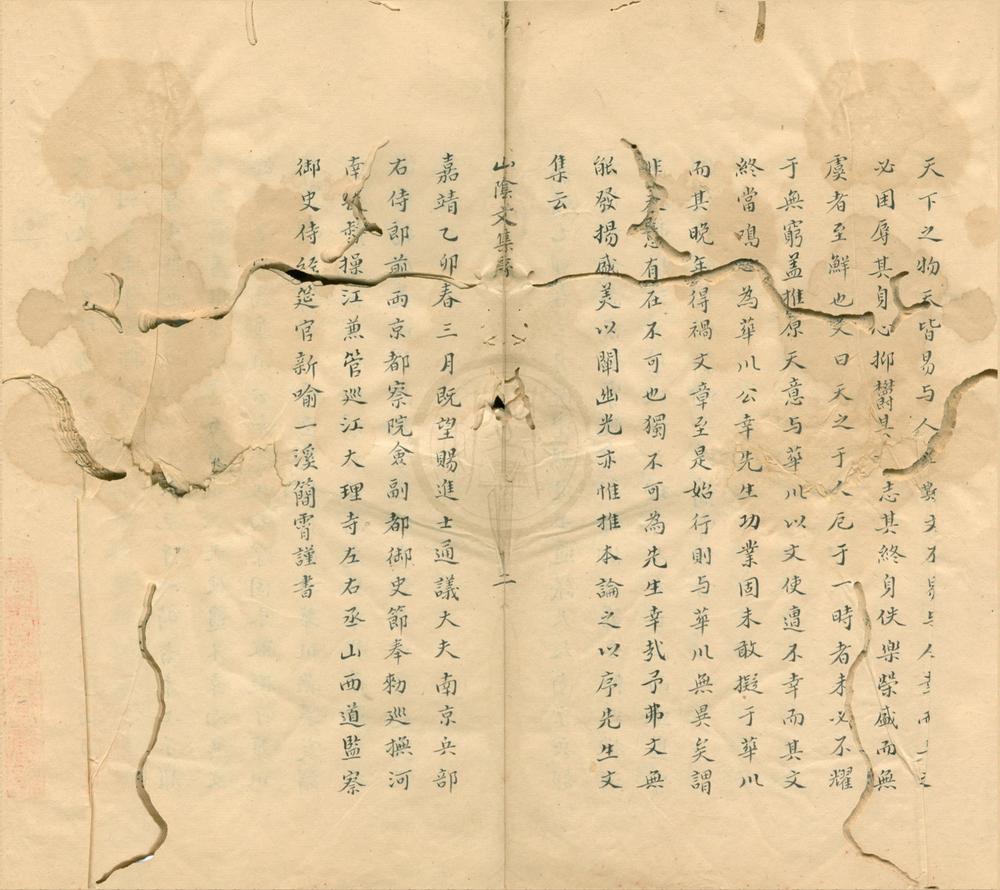 天下之物天皆易与人文不易与人而
必困辱其身心抑鬱其志其終身佚樂榮盛而無
虞者至鮮也又曰天之于人厄于一時者未必不耀
于無窮盖推原天意与華川以文使遭不幸而其文
終當鳴為華川公幸先生功業固未敢擬于華川
而其晚年得禍文章至是始行則与華川無異矣謂
非天意有在不可也獨不可為先生幸㢤予弗文無
能發揚盛美以闡幽光亦惟推本論之以序先生文
集云
山陰文集序
二
嘉靖乙卯春三月既望賜進士通議大夫南京兵部
右侍郎前兩京都察院僉副都御史節奉勑巡撫河
南操江兼管巡江大理寺左右丞山西道監察
御史侍經筵官新喻一溪簡霄謹書